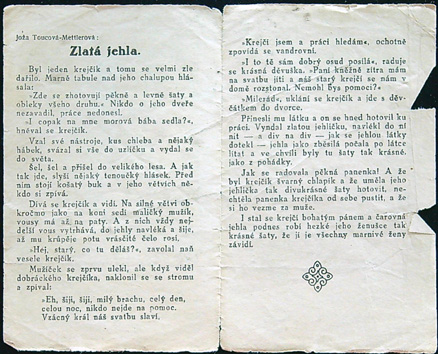 Joža Toucová-Mettlerová:
Zlatá jehla.
Byl jeden krejčík a tomu se velmi zle
dařilo. Marně tabule nad jeho chalupou hlá-
sala:
"Zde se zhotovují pěkné a levné šaty a
obleky všeho druhu." Nikdo o jeho dveře
nezavadil, práce nedonesl.
"I copak na mne morová bába sedla?",
hněval se krejčík.
Vzal své nástroje, kus chleba a nějaký
hábek, svázal si vše do uzlíčku a vydal se
do světa.
Šel, šel a přišel do velikého lesa. A jak
tak jde, slyší nějaký tenoučký hlásek. Před
ním stojí košatý buk a v jeho větvích něk-
do si zpívá.
Dívá se krejčík a vidí. Na silné větvi ob-
kročmo jako na koni sedí maličký mužík,
vousy má až na paty. A z nich vždy nej-
delší vous vytrhává, do jehly navléká a šije,
až mu krůpěje potu vrásčité čelo rosí.
"Hej, starý, co tu děláš?", zavolal naň
vesele krejčík.
Mužíček se zprvu ulekl, ale když viděl
dobráckého krejčíka, naklonil se se stromu
a zpíval:
"Eh, šiji, šiji, milý brachu, celý den,
celou noc, nikdo nejde na pomoc.
Vzácný král náš svatbu slaví.
"Krejčí jsem a práci hledám", ochotně
zpovídá se vandrovní.
"I to tě sám dobrý osud posílá", raduje
se krásná děvuška. "Paní kněžně zítra mám
na svatbu jíti a náš starý krejčí se nám v
domě rozstonal. Nemohl bys pomoci?"
"Milerád", uklání se krejčík a jde s děv-
čátkem do dvorce.
Přinesli mu látku a on se hned hotovil ku
práci. Vyndal zlatou jehličku, navlékl do ní
nit — a div na div — jak se jehlou látky
dotekl — jehla jako zběsilá počala po látce
lítat a ve chvíli byly tu šaty tak krásné,
jako z pohádky.
Jak se radovala pěkná panenka! A že
byl krejčík švarný chlapík a že uměla jeho
jehlička tak divukrásné šaty hotovit, ne-
chtěla panenka krejčíka od sebe pustit, a že
si ho vezme za muže.
I stal se krejčí bohatým pánem a čarovná
jehla podnes robí hezké jeho ženušce tak
krásné šaty, že jí je všechny marnivé ženy
závidí.